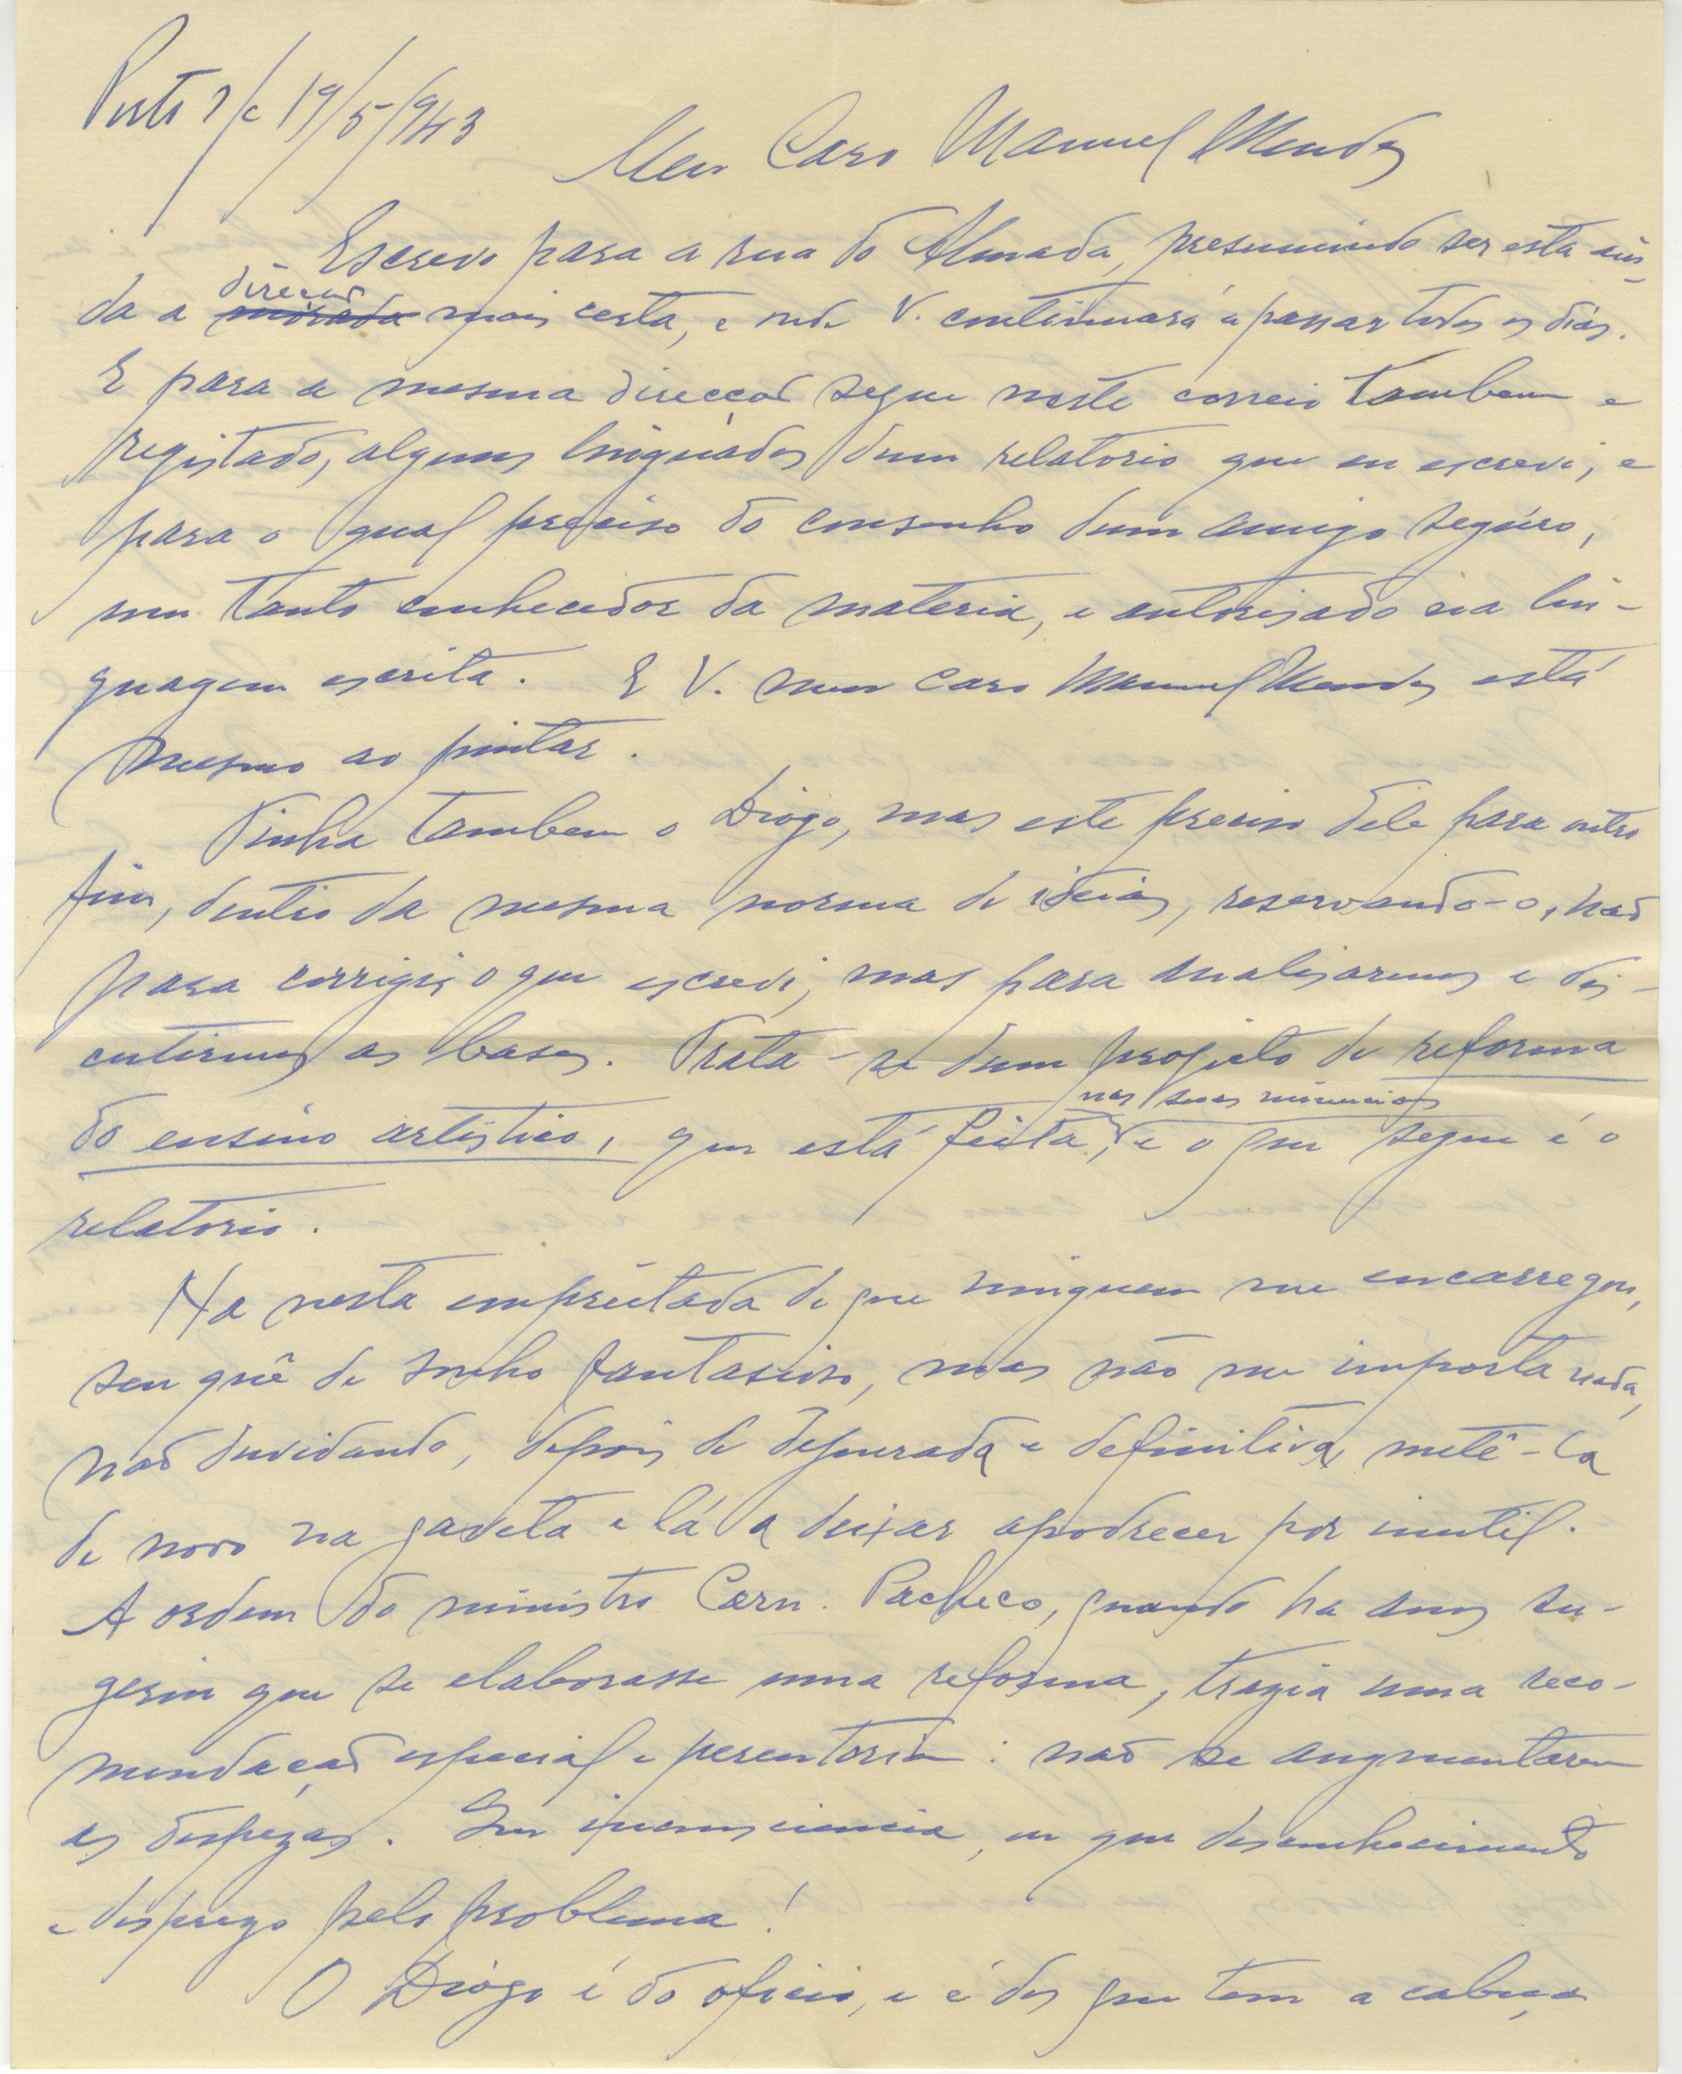 Porto, 19/5/943
Meu Caro Manuel Mendes
Escrevo para a rua do Almada, presumindo ser esta ain-
da a direcçaõ morada mais certa, e onde V. continuará a passar todos os dias.
E para a mesma direcçaõ segue neste correio tambem e
registado, alguns linguados dum relatorio que eu escrevi, e
para o qual preciso do conselho dum amigo seguro,
um tanto conhecedor da materia, e autorisado na lin-
guagem escrita. E V. meu caro Manuel Mendes está
mesmo ao pintar.
Tinha tambem o Diogo, mas este preciso dele para outro
fim, dentro da mesma norma de ideias, reservando-o, naõ
para corrigir o que escrevi, mas para analisarmos e dis-
cutirmos as bases. Trata-se dum projecto de reforma
do ensino artistico, que está feita, nas suas minucias e o que segue é o
relatorio.
Ha nesta empreitada de que ninguem me encarregou,
seu quê de sonho fantasioso, mas não me importa nada,
naõ duvidando, depois de depurada e definitiva, metê-la
de novo na gaveta e lá a deixar apodrecer por inutil.
A ordem do ministro Carn. Pacheco, quando ha anos su-
geriu que se elaborasse uma reforma, trazia uma reco-
mendaçaõ especial e perentoria: naõ se augmentarem
as despezas. Que inconsciencia, ou que desconhecimento
e desprezo pelo problema!
O Diogo é do oficio, e é dos que tem a cabeça